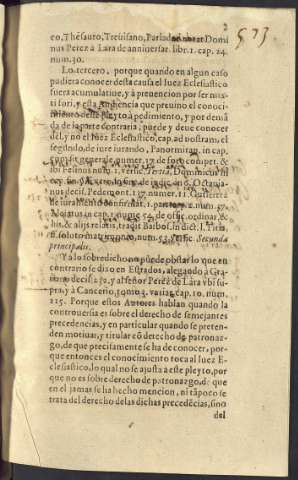 2
573
co, Thesauro, Treuisano, Parladonotat Domi
nus Perez à Lara de anniuersar. libr. 1. cap. 24.
num. 30.
Lo tercero, porque quando en algun caso
pudiera conocer desta causa el Iuez Eclesiastico
fuera acumulatiue, y à preuencion por ser mix-
ti fori, y esta Audiencia que preuino el conoci-
miento deste pleyto à pedimiento, y por deman
da de la parte contraria, puede y deue conocer
del, y no el Iuez Eclesiastico, cap. ad nostram, el
segundo, de iure iurando, Panormitan. in cap.
cum sit generale, numer. 12. de foro compet. &
ibi Felinus num. 1. versic. Tertia, Dominicus in
nus decis. Pedemont. 137. numer. 11. Gutierrez
de iuramento confirmat. 1. part. cap. 2. num. 27.
Molatus in cap. 1. num. 55. de offic. ordinar. &
his, & alijs relatis, tradit Barbos. in dict. l. Titia,
ff. soluto matrimonio, num. 53. versic. Secunda
principalis.
Y a lo sobredicho no puede obstar lo que en
contrario se dixo en Estrados, alegando à Gra-
tiano decis. 39. y al señor Perez de Lara vbi su-
pra, y à Cancerio, tomo 3. varias, cap. 10. num.
215. Porque estos Autores hablan quando la
controuersia es sobre el derecho de semejantes
precedencias, y en particular quando se preten-
den motiuar, y titular cõ derecho de patronaz-
go, de que precitamente se ha de conocer, por-
que entonces el conocimiento toca al Iuez E-
clesiastico, lo qual no se ajusta a este pleyto, por
que no es sobre derecho de patronazgo, de que
en el jamas se ha hecho mencion, ni tãpoco se
trata del derecho de las dichas precedẽcias, sino
del